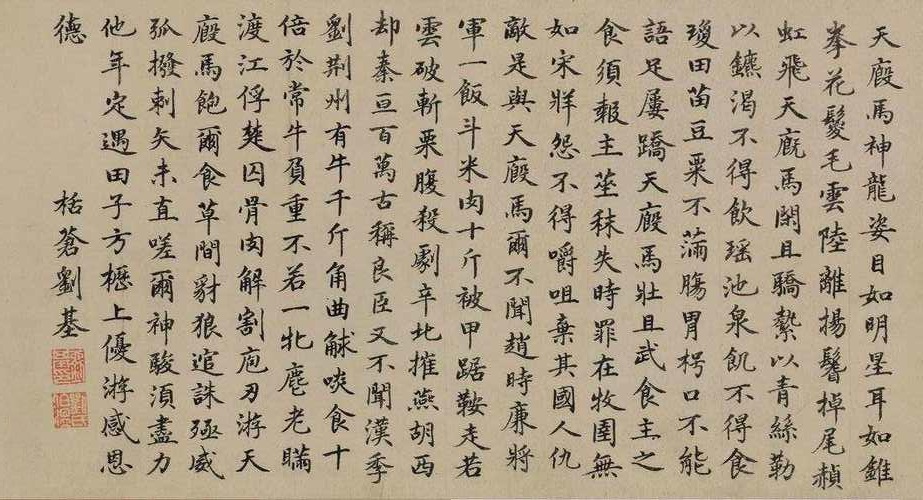 天廄馬神龍姿目如明星耳如錐
拳花鬉毛雲陸離揚鬐掉尾赬
虹飛天廐馬閑且驕縶以青絲勒
以鑣渴不得飲瑤池泉飢不得食
瓊田苗豆粟不滿腸胃枵口不能
語足屢蹻天廄馬壯且武食主之
食須報主莝秣失時罪在牧圉無
如宋牂怨不得嚼咀棄其國人仇
敵是與天廄馬爾不聞趙時廉將
軍一飯斗米肉十斤被甲踞鞍走若
雲破斬栗腹殺劇辛北摧燕胡西
却秦亘百萬古稱良臣又不聞漢季
劉荊州有牛千斤角曲觩啖食十
倍於常牛負重不若一牝麀老瞞
渡江俘楚囚骨肉解割庖刃游天
廄馬飽爾食草間豺狼逭誅殛威
弧撥剌矢未直嗟爾神駿須盡力
他年定遇田子方櫪上優游感恩
德
栝蒼劉基